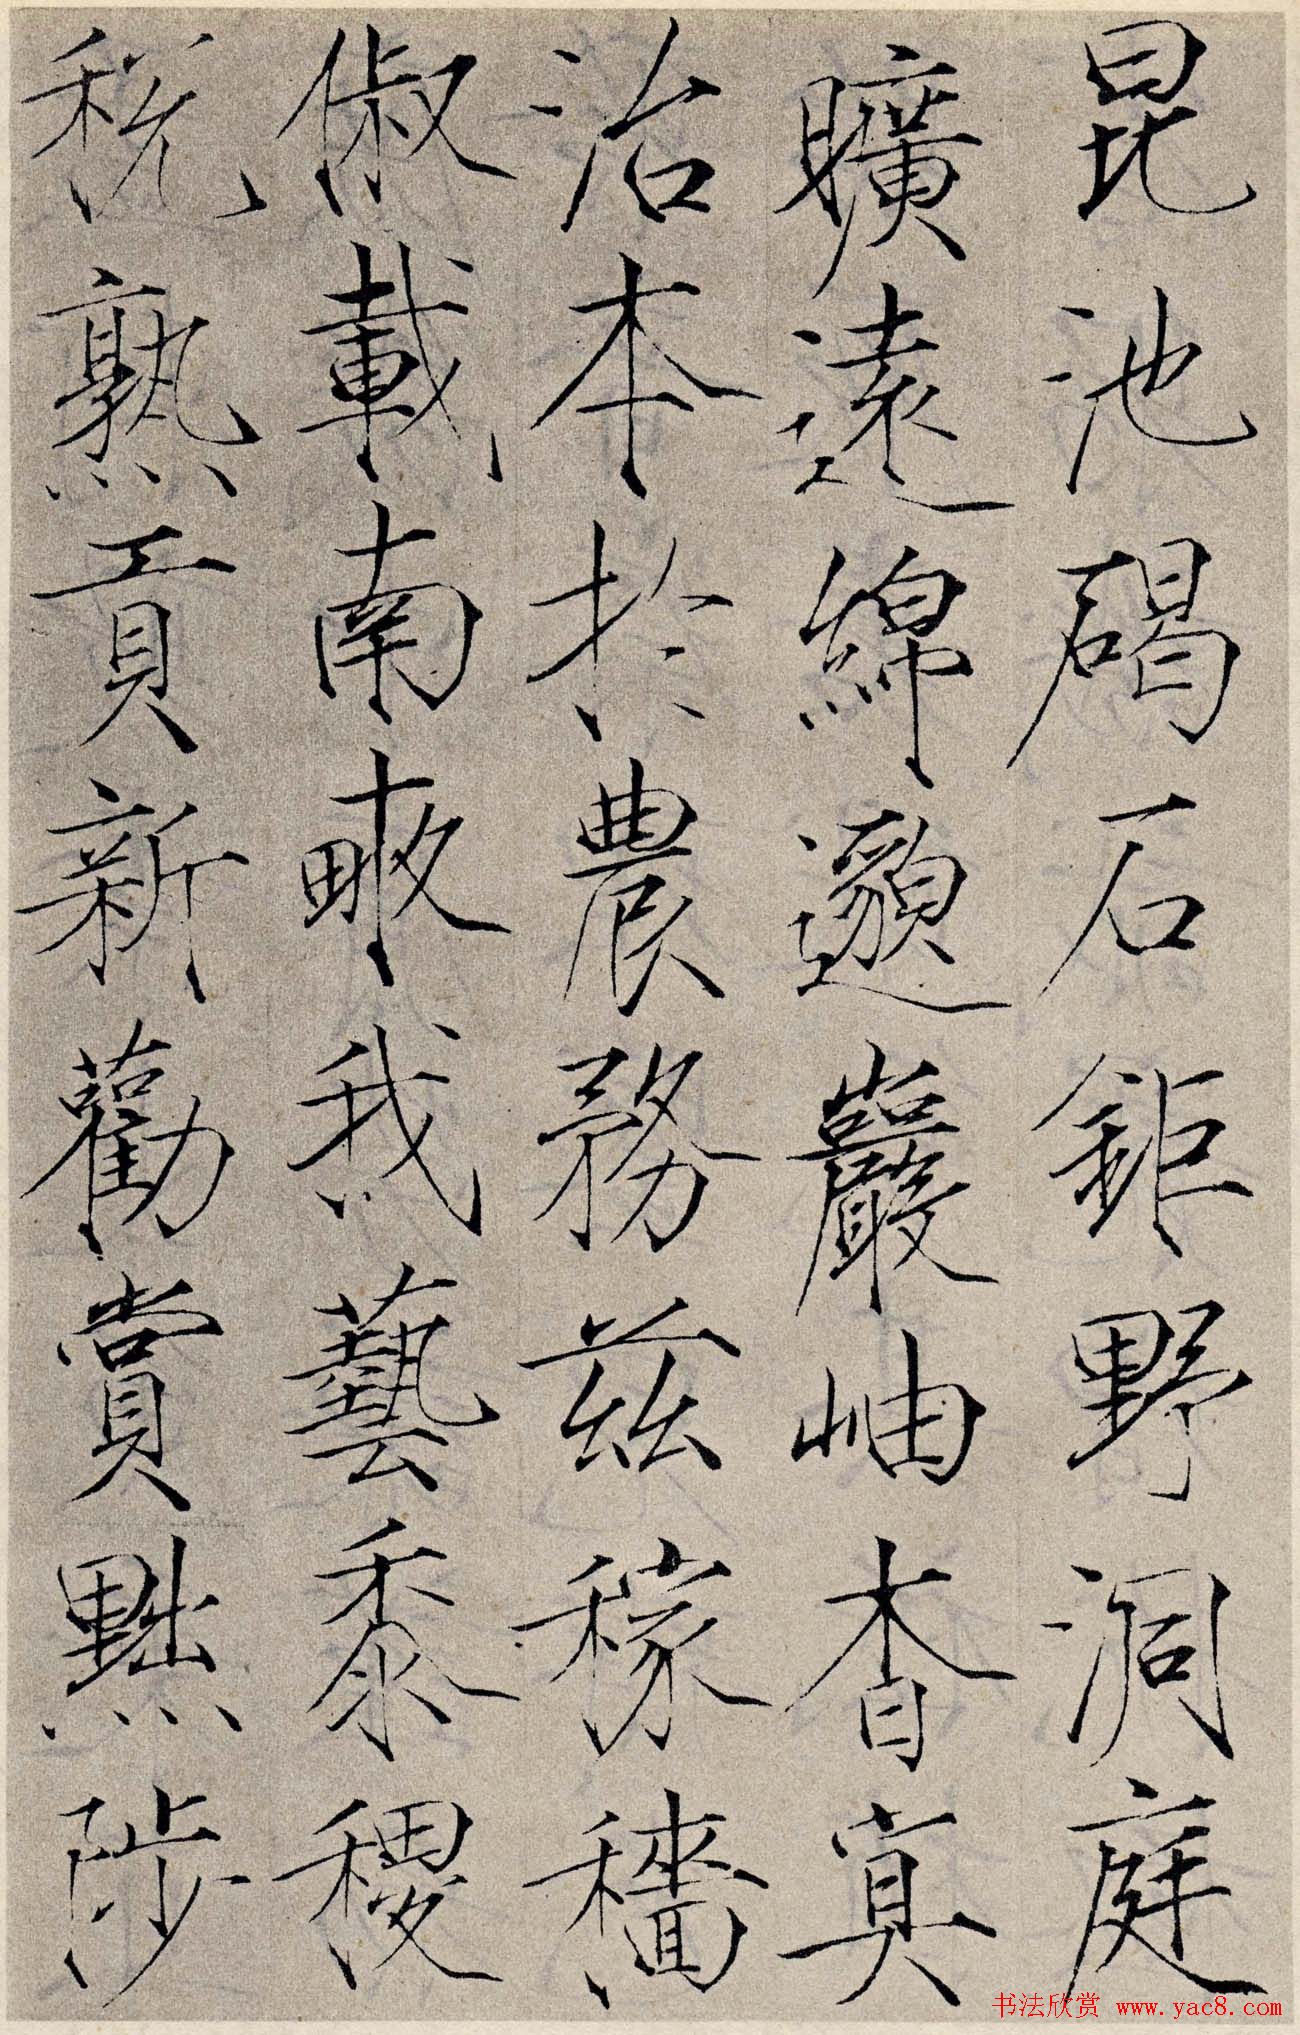 昆池碣石鉅野洞庭
曠遠綿邈巖岫杳冥
治本於農務茲稼穡
俶載南畝我藝黍稷
稅熟貢新勸賞黜陟
书法欣赏 www.yac8.com